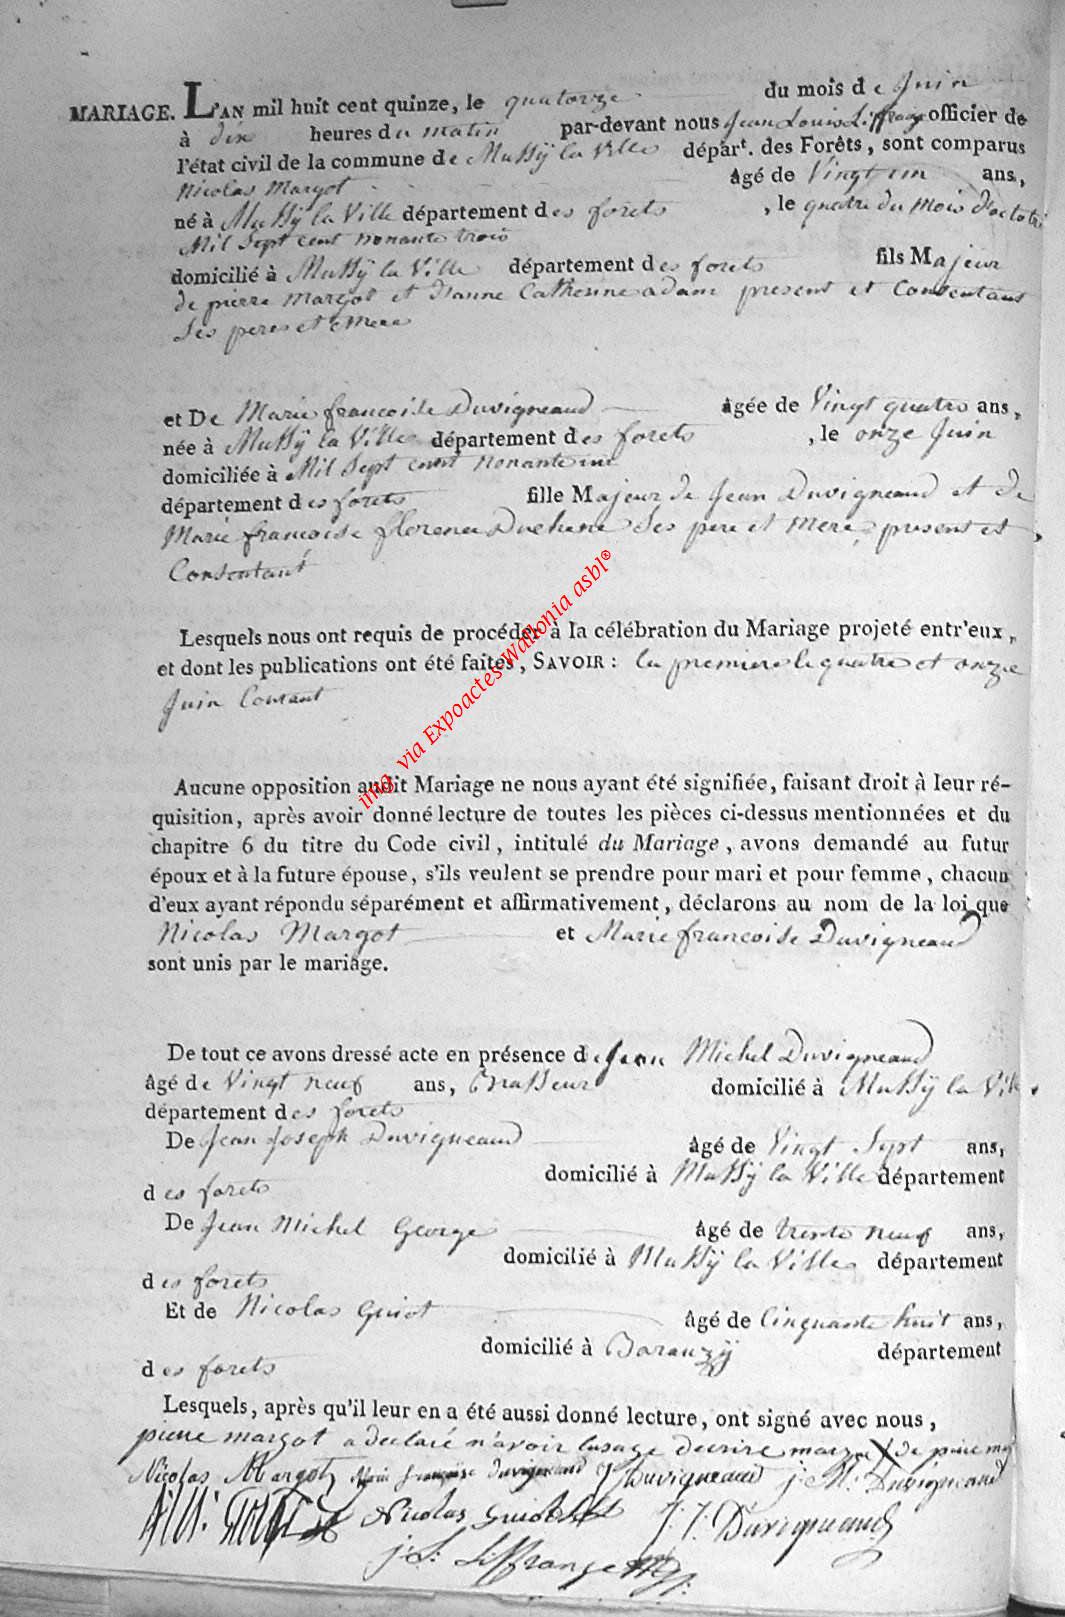 MARIAGE. L'AN mil huit cent quinze, le quatorze du mois de Juin
à dix heures du matin par-devant nous Jean Louis Liffrange officier de
l'état civil de la commune de Mussÿ la Ville départ. des Forêts, sont comparus
Nicolas Margot âgé de Vingt un ans,
né à Mussÿ la Ville département des forets, le quatre du mois d'octobre
Mil Sept cent nonante trois
domicilié à Mussÿ la Ville département des forets fils Majeur
de pierre Margot et Jeanne Catherine adam present et Consentant
Ses peres et Mere
et De Marie francoise Duvigneaud âgée de Vingt quatre ans,
née à Mussÿ la Ville département des forets, le onze Juin
domiciliée à Mil Sept cent nonante un
département des forets fille Majeur de Jean Duvigneaud et de
Marie francoise florence Duchene Ses pere et Mere, present et
Consentant
Lesquels nous ont requis de procéder à la célébration du Mariage projeté entr'eux,
et dont les publications ont été faites, SAVOIR : la premiere le quatre et onze
Juin Courant
img via Expoactes-Wallonia asbl®
Aucune opposition audit Mariage ne nous ayant été signifiée, faisant droit à leur ré-
quisition, après avoir donné lecture de toutes les pièces ci-dessus mentionnées et du
chapitre 6 du titre du Code civil, intitulé du Mariage, avons demandé au futur
époux et à la future épouse, s'ils veulent se prendre pour mari et pour femme, chacun
d'eux ayant répondu séparément et affirmativement, déclarons au nom de la loi que
Nicolas Margot et Marie francoise Duvigneaud
sont unis par le mariage.
De tout ce avons dressé acte en présence de Jean Michel Duvigneaud
âgé de Vingt neuf ans, Brasseur domicilié à Mussÿ la Ville
département des forets
De Jean Joseph Duvigneaud âgé de Vingt Sept ans,
domicilié à Mussÿ la Ville département
des forets
De Jean Michel George âgé de trente neuf ans,
domicilié à Mussÿ la Ville département
des forets
Et de Nicolas Guiot âgé de Cinquante huit ans,
domicilié à Baranzÿ département
des forets
Lesquels, après qu'il leur en a été aussi donné lecture, ont signé avec nous,
pierre margot a declaré n'avoir lusage decrire marque X de piere
Nicolas Margot Marie françoise duvigneaud J Duvigneaud j M: Duvigneaud
Nicolas Guiot J: J: Duvigneaud
j: L: Liffrange